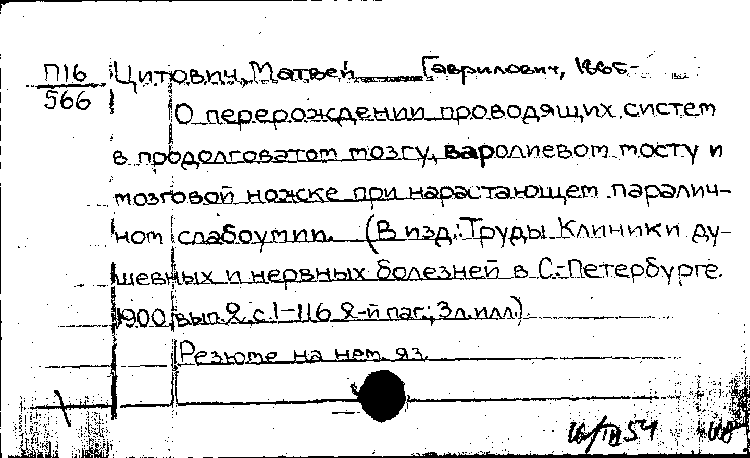 П16 Цитович, Матвей Гаврилович, 1865-
566
О перерождении проводящих систем
в продолговатом мозгу, варолиевом мосту и
мозговой ножке при нарастающем паралич-
ном слабоумии. (В изд.: Труды Клиники ду-
шевных и нервных болезней в С.-Петербурге.
1900 вып. 2, с. 1-116 2-й паг.; 3 л. илл.)
Резюме на нем. яз.
54